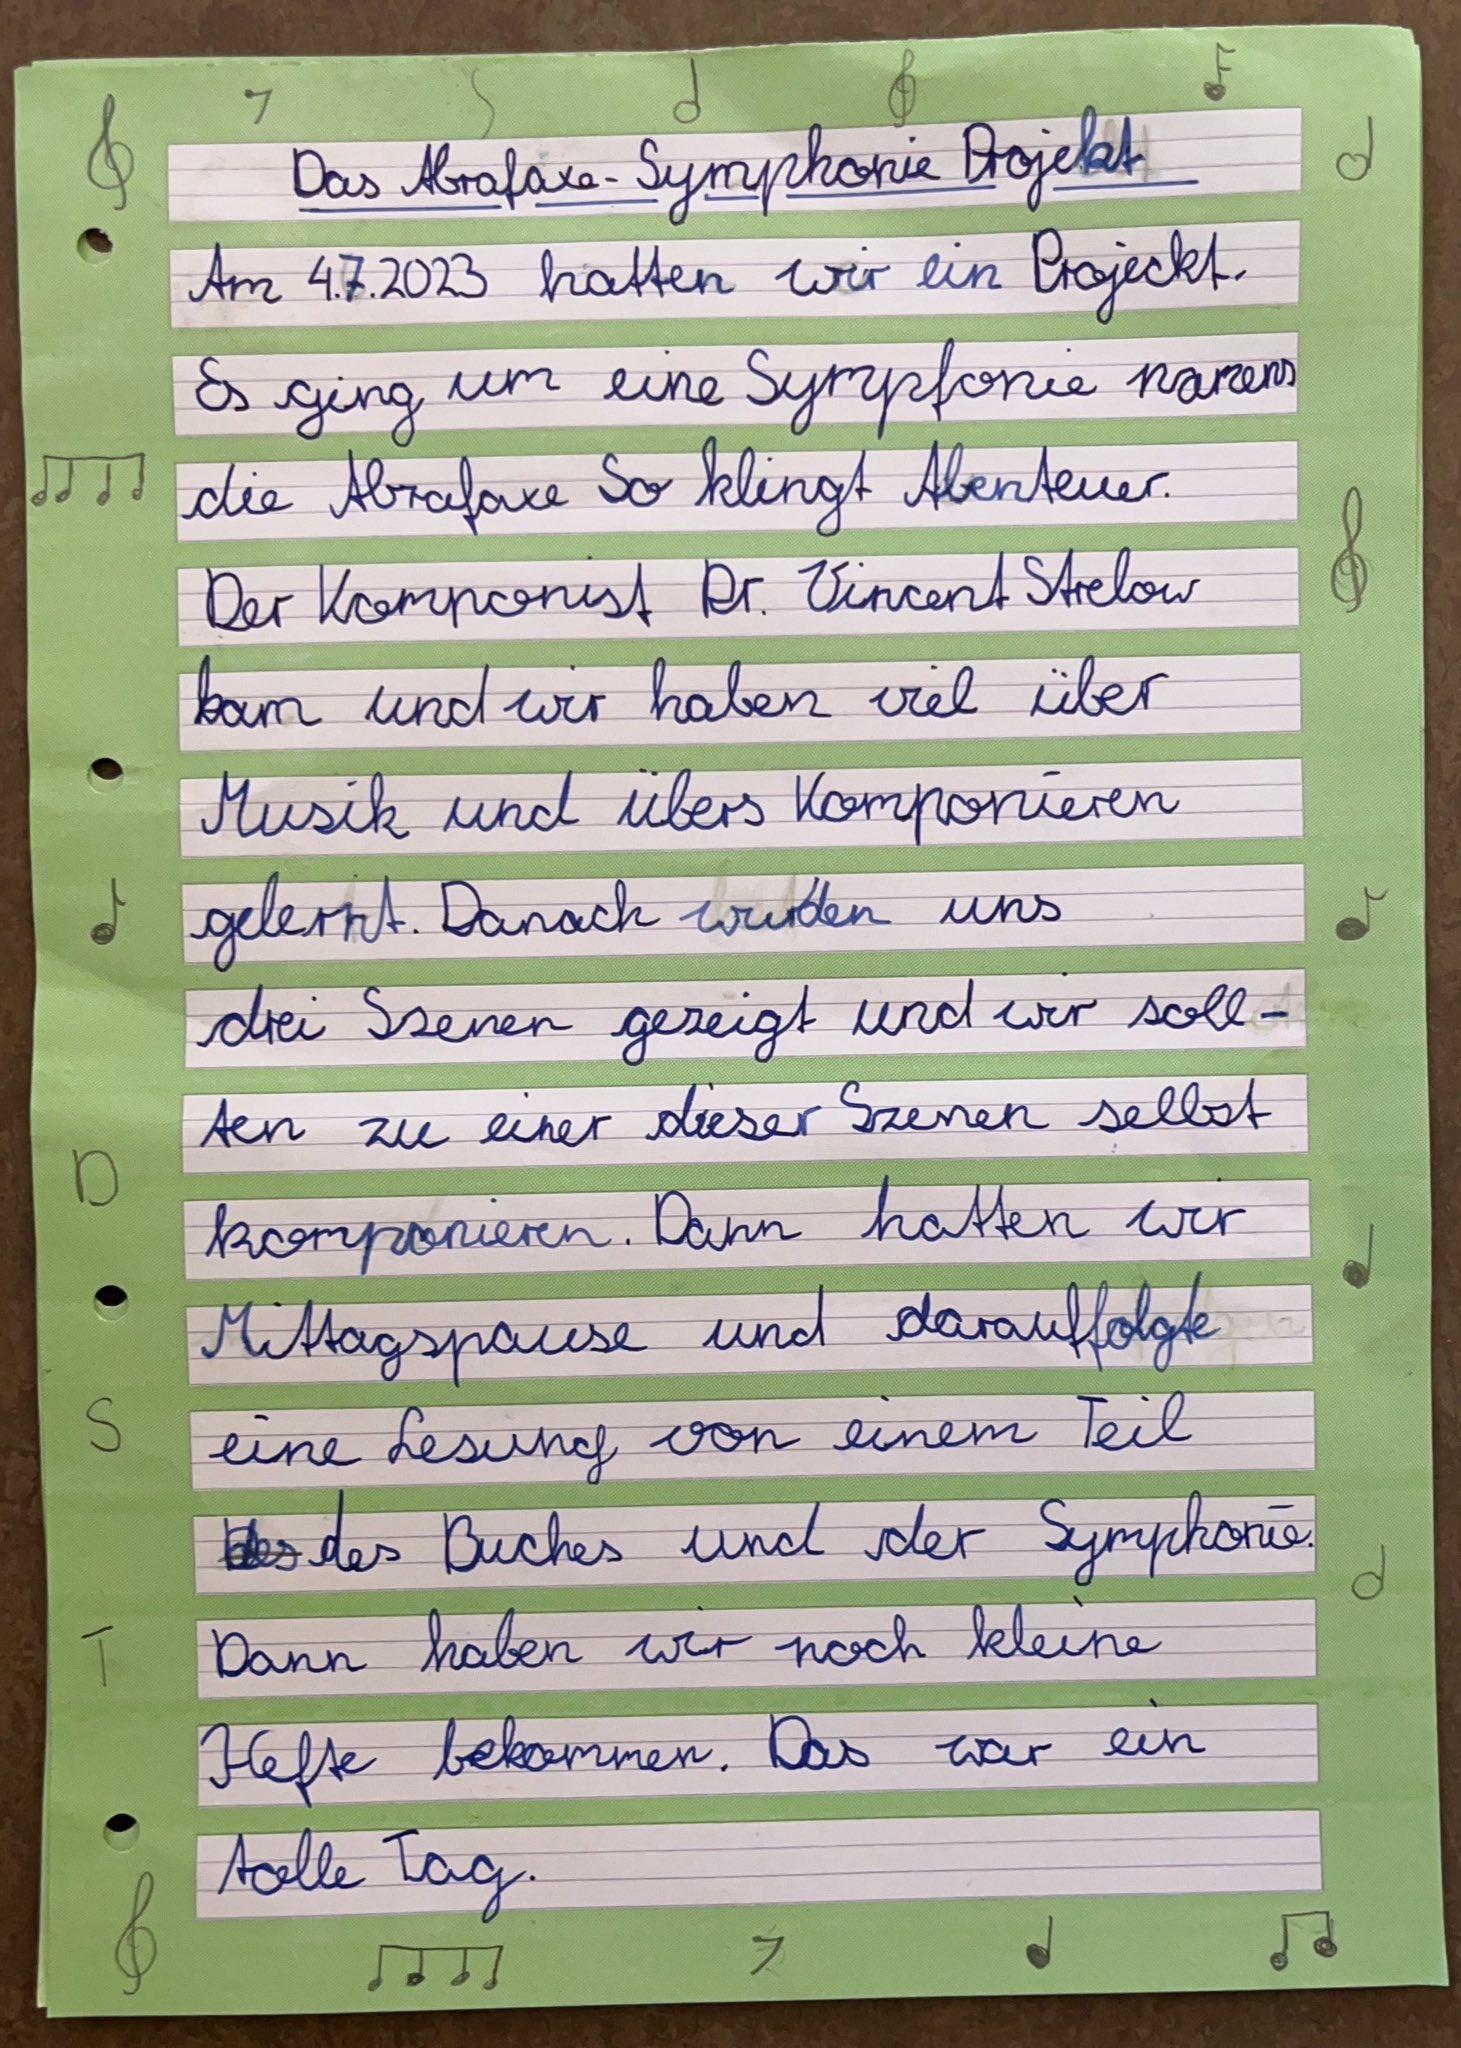 Das Abrafaxe-Symphonie Projekt
Am 4.7.2023 hatten wir ein Projeckt.
Es ging um eine Sympfonie namens
die Abrafaxe So klingt Abenteuer.
Der Komponist Dr. Vincent Strelow
kam und wir haben viel über
Musik und übers Komponieren
gelernt. Danach wurden uns
drei Szenen gezeigt und wir soll-
ten zu einer dieser Szenen selbst
komponieren. Dann hatten wir
Mittagspause und darauffolgte
eine Lesung von einem Teil
des Buches und der Symphonie.
Dann haben wir noch kleine
Hefte bekommen. Das war ein
tolle Tag.
D
S
T